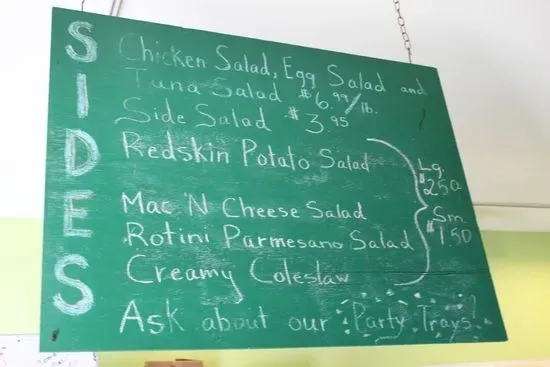 SIDES
Chicken Salad, Egg Salad and
Tuna Salad $6.99/lb.
Side Salad $3.95
Redskin Potato Salad
Mac 'N Cheese Salad
Rotini Parmesano Salad
Creamy Coleslaw
Lg.
$2.50
Sm.
$1.50
Ask about our Party Trays!